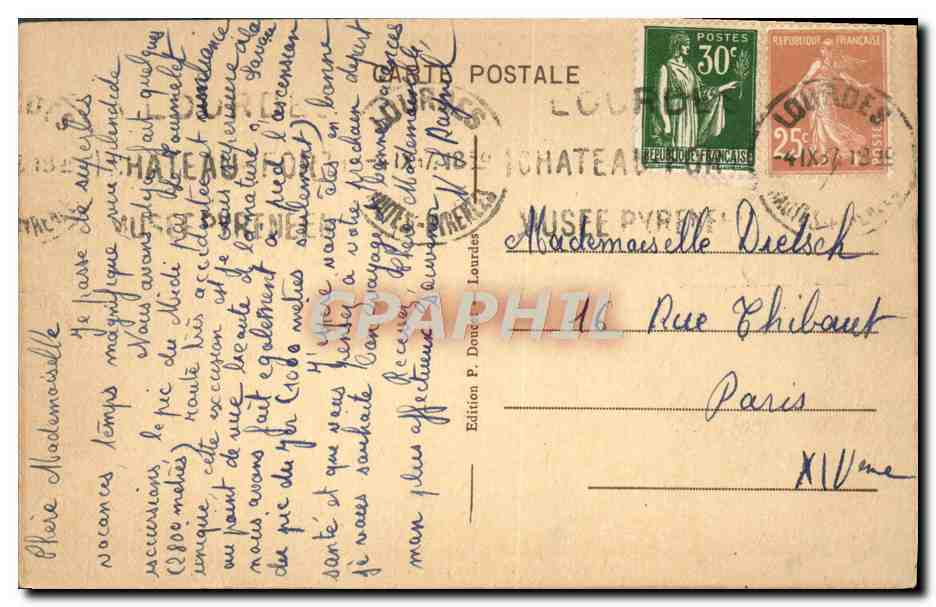 CARTE POSTALE
POSTES
30c
REPUBLIQUE FRANÇAISE
REPUBLIQUE FRANÇAISE
25c
POSTES
LOURDES
-4 IX 37 18
HAUTES-PYRENEES
LOURDES
CHATEAU FORT
MUSEE PYRENEEN
LOURDES
CHATEAU FORT
MUSEE PYRENEEN
Mademoiselle Dietsch
16 Rue Thibaut
Paris
XIVeme
Edition P. Doucet Lourdes
CPAPHIL
Chère Mademoiselle
Je passe de superbes
vacances, temps magnifique vue splendide
Nous avons déjà fait quelques
excursions le pic du Midi par le Tourmalet
(2800 mètres) route très accidentée et
unique, cette excursion est je crois supérieure à la
au point de vue beauté de la nature,
nous avons fait également à pied l'ascension
du pic du Jer (1000 mètres seulement)
J'espère que vous êtes en bonne
santé et que vous pensez à votre prochain départ
je vous souhaite bon voyage bonnes vacances
Recevez Chère Mademoiselle,
mon plus affectueux souvenir